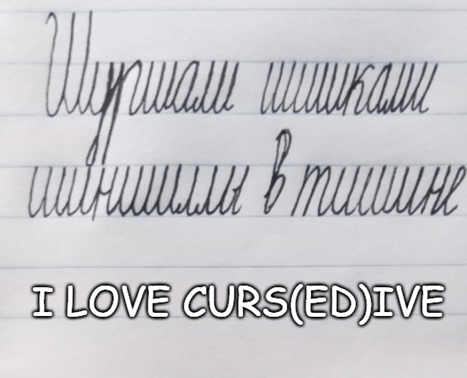 Шуршали шишками
шиншиллы в тишине
I LOVE CURS(ED)IVE